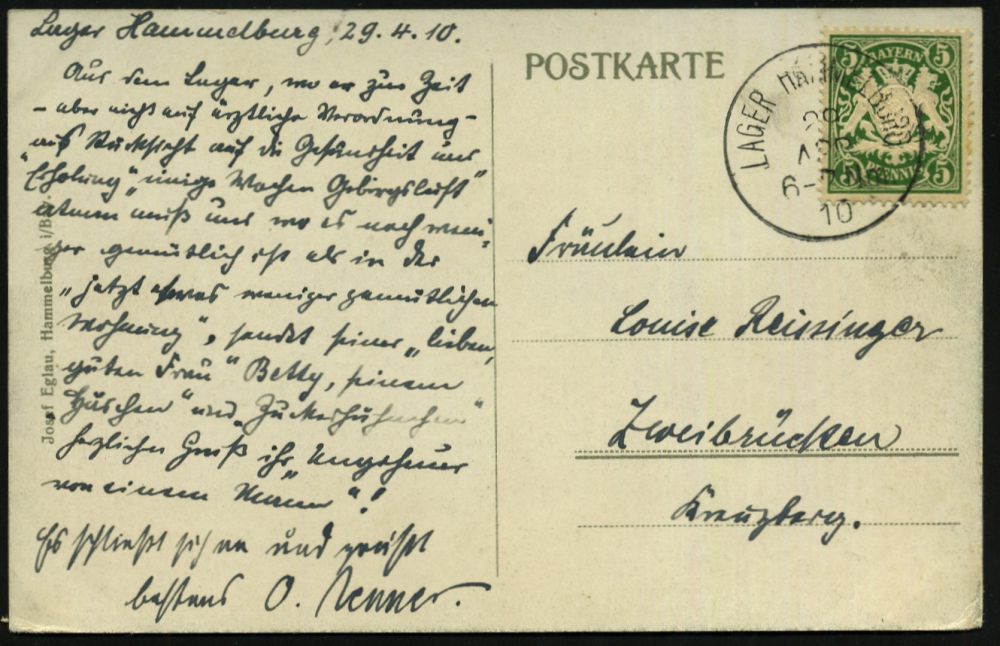 Lager Hammelburg, 29.4.10.
Aus dem Lager, wo er zur Zeit
- aber nicht auf ärztliche Verordnung -
aus Rücksicht auf die Gesundheit und
"Erholung" einige Wochen "Gebirgsluft"
atmen muß und wo es noch weni-
ger gemütlich ist als in der
"jetzt etwas weniger gemütlichen
Wohnung", sendet seiner "lieben,
guten Frau" Betty, seinem
"Häschen" und "Zuckerhühnchen"
herzlichen Gruß ihr "Ungeheuer
von einem Mann"!
Es schließt sich an und grüßt
bestens O. Renner.
Josef Eglau, Hammelburg i/Bay.
POSTKARTE
LAGER HAMMELBURG
APR
6-7 NM
10
BAYERN
5 5
PFENNIG
5 5
Fräulein
Louise Reissinger
Zweibrücken
Kreuzberg.